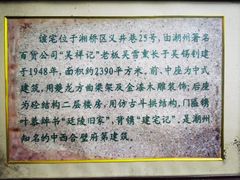 该宅位于湘桥区义井巷25号，由潮州著名
百货公司“吴祥记”老板吴雪熏长子吴锡钊建
于1948年，面积约2390平方米，前、中座为中式
建筑，用夔龙方曲梁架及金漆木雕装饰；后
座为砼结构二层楼房，用仿古斗拱结构，门匾镌
叶恭绰书“延陵旧家”，背镌“建宅记”，是潮州
知名的中西合璧府第建筑。